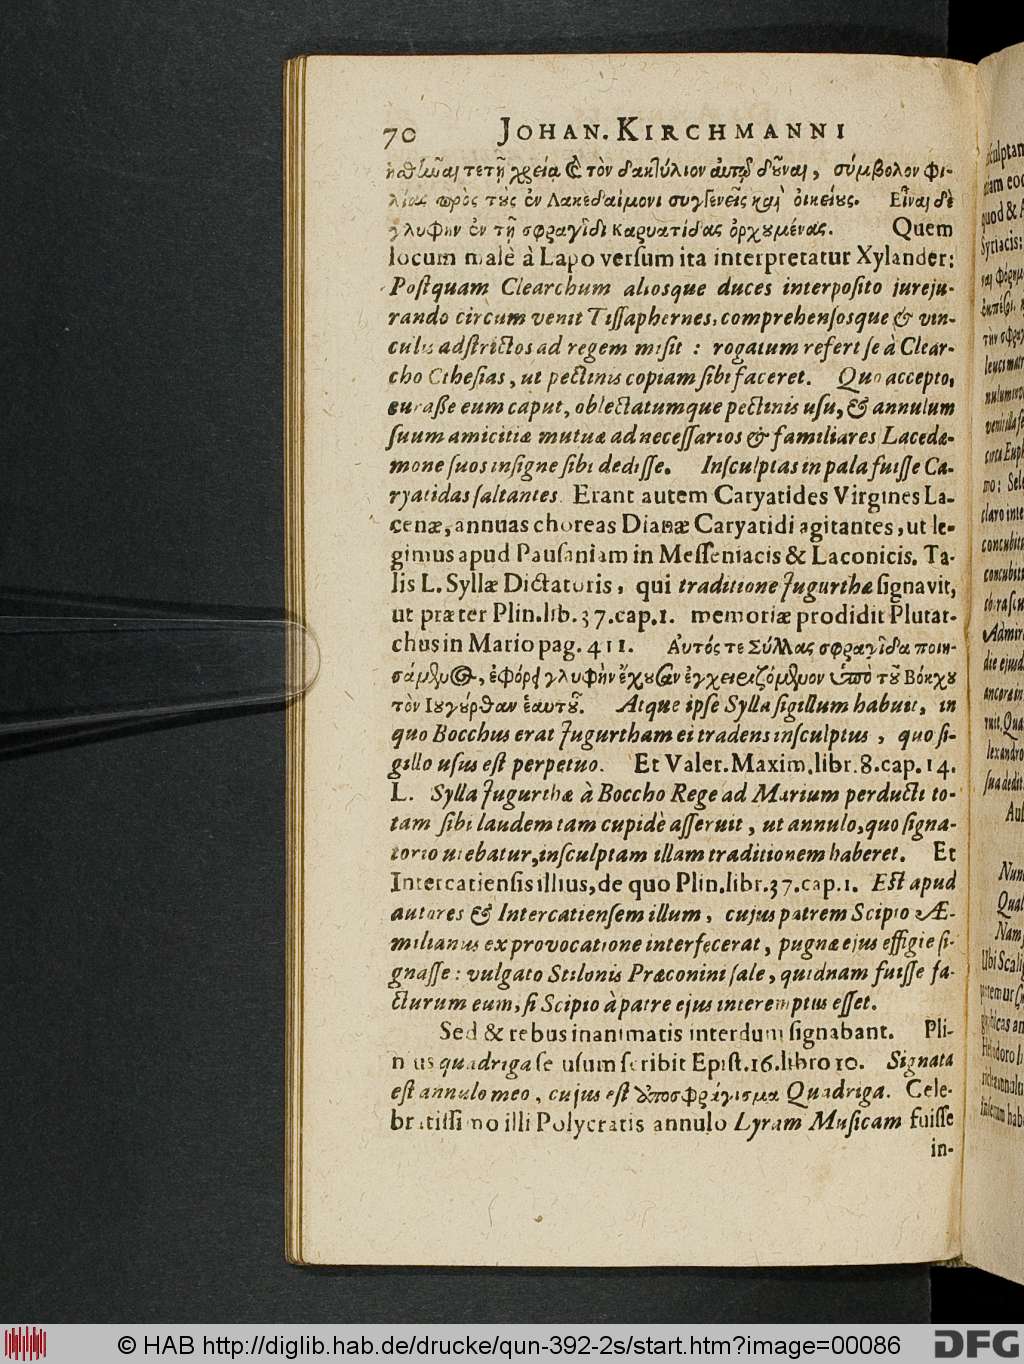 70 JOHAN. KIRCHMANNI
ἡσθῆναι τε τῇ χρείᾳ καὶ τὸν δακτύλιον αὐτῷ δοῦναι, σύμβολον φι-
λίας πρὸς τοὺς ἐν Λακεδαίμονι συγγενεῖς καὶ οἰκείους. Εἶναι δὲ
γλυφὴν ἐν τῇ σφραγῖδι καρυατίδας ὀρχουμένας. Quem
locum malè à Lapo versum ita interpretatur Xylander:
Postquam Clearchum aliosque duces interposito jureju-
rando circum venit Tissaphernes, comprehensosque & vin-
culis adstrictos ad regem misit : rogatum refert se à Clear-
cho Cthesias, ut pectinis copiam sibi faceret. Quo accepto,
curasse eum caput, oblectatumque pectinis usu, & annulum
suum amicitiæ mutuæ ad necessarios & familiares Lacedæ-
mone suos insigne sibi dedisse. Insculptas in pala fuisse Ca-
ryatidas saltantes. Erant autem Caryatides Virgines La-
cenæ, annuas choreas Dianæ Caryatidi agitantes, ut le-
gimus apud Pausaniam in Messeniacis & Laconicis. Ta-
lis L. Syllæ Dictatoris, qui traditione Jugurthæ signavit,
ut præter Plin. lib. 37. cap. 1. memoriæ prodidit Plutar-
chus in Mario pag. 411. Αὐτός τε Σύλλας σφραγῖδα ποιη-
σάμενος, ἐφόρει γλυφὴν ἔχουσαν ἐγχειριζόμενον ὑπὸ τοῦ Βόκχου
τὸν Ιουγούρθαν ἑαυτοῦ. Atque ipse Sylla sigillum habuit, in
quo Bocchus erat Jugurtham ei tradens insculptus, quo si-
gillo usus est perpetuo. Et Valer. Maxim. libr. 8. cap. 14.
L. Sylla Jugurthæ à Boccho Rege ad Marium perducti to-
tam sibi laudem tam cupidè asseruit, ut annulo, quo signa-
torio utebatur, insculptam illam traditionem haberet. Et
Intercatiensis illius, de quo Plin. libr. 37. cap. 1. Est apud
autores & Intercatiensem illum, cujus patrem Scipio Æ-
milianus ex provocatione interfecerat, pugnæ ejus effigie si-
gnasse : vulgato Stilonis Præconini sale, quidnam fuisse fa-
cturum eum, si Scipio à patre ejus interemptus esset.
Sed & rebus inanimatis interdum signabant. Pli-
nius quadriga se usum scribit Epist. 16. libro 10. Signata
est annulo meo, cujus est ἀποσφράγισμα Quadriga. Cele-
bratissimo illi Polycratis annulo Lyram Musicam fuisse
in-
© HAB http://diglib.hab.de/drucke/qun-392-2s/start.htm?image=00086
DFG